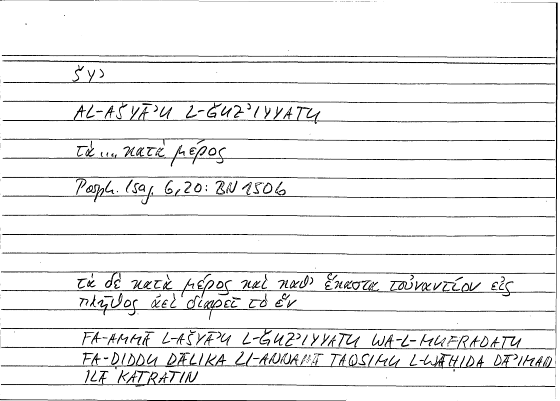 šyʾ
AL-AŠYĀʾU L-ǦUZʾIYYATU
τὰ ... κατὰ μέρος
Porph. Isag. 6,20: BN 150b
τὰ δὲ κατὰ μέρος καὶ καθʾ ἕκαστα τοὐναντίον εἰς
πλῆθος ἀεὶ διαιρεῖ τὸ ἕν
FA-AMMĀ L-AŠYĀʾU L-ǦUZʾIYYATU WA-L-MUFRADATU
FA-ḌIDDU ḎĀLIKA LI-ANNAHĀ TAQSIMU L-WĀḤIDA DĀʾIMAN
ILĀ KAṮRATIN